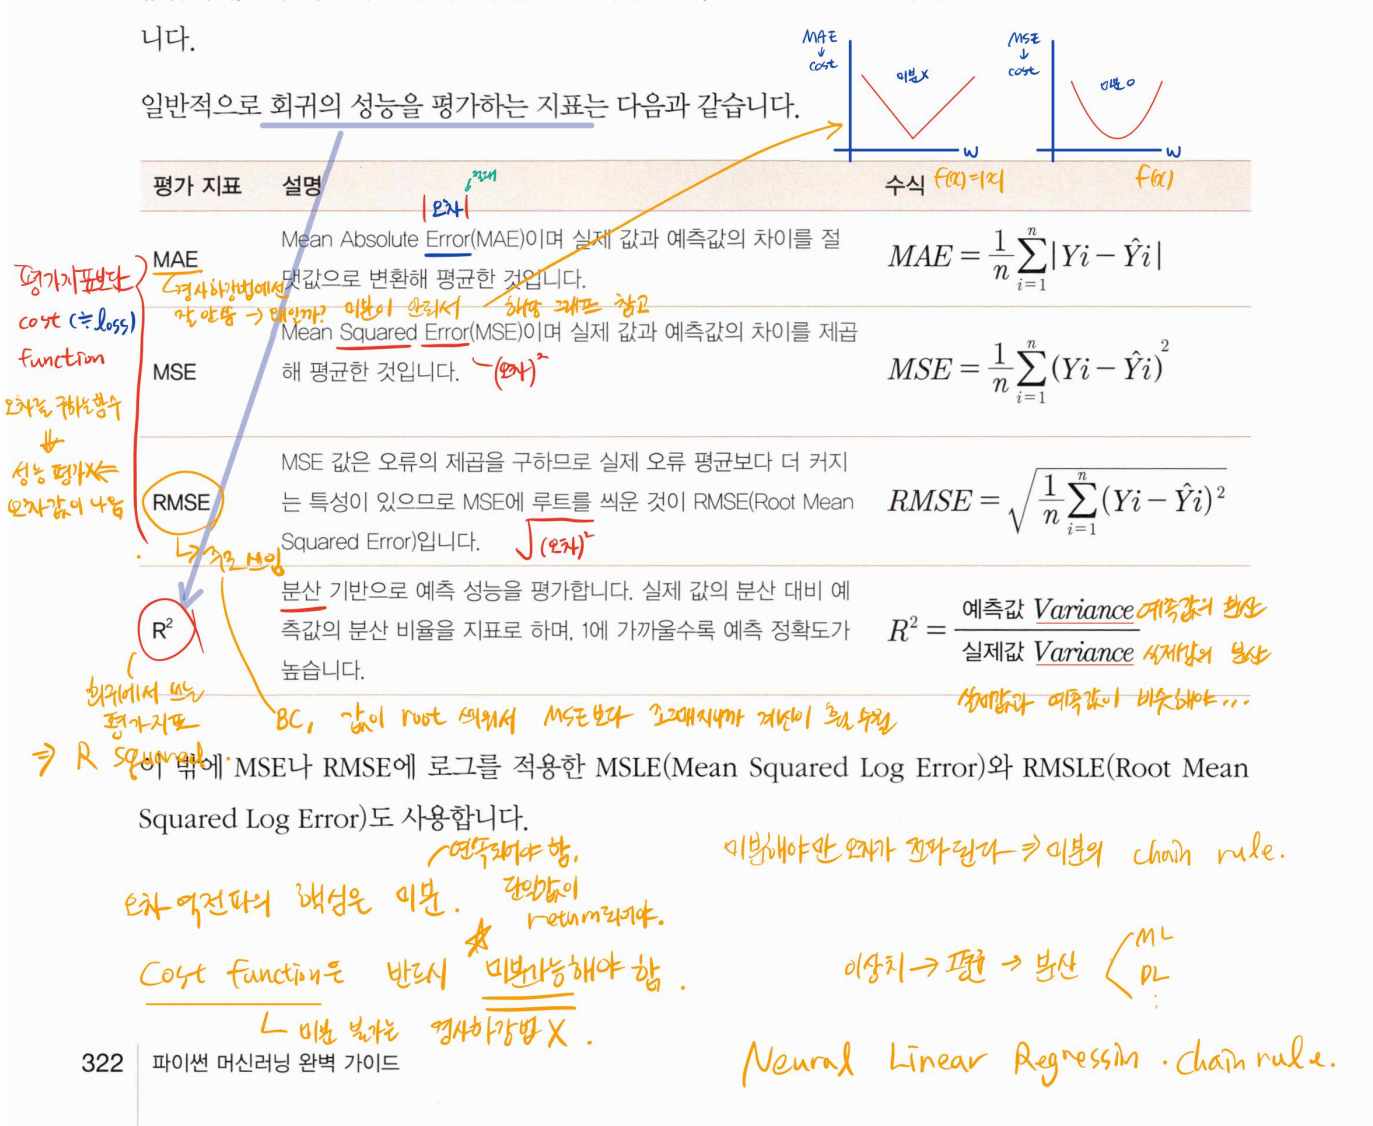 니다.
MAE
↓
cost
미분X
w
MSE
↓
cost
미분O
w
일반적으로 회귀의 성능을 평가하는 지표는 다음과 같습니다.
평가 지표 설명 수식 f(x)=|x| f(x)
절대
|오차|
MAE
Mean Absolute Error(MAE)이며 실제 값과 예측값의 차이를 절
댓값으로 변환해 평균한 것입니다.
MAE = 1/n ∑ⁿᵢ₌₁ |Yi − Ŷi|
경사하강법에선
잘 안씀 → 왜일까? 미분이 안되서 해당 그래프 참고
평가지표보단
cost (≒loss)
function
오차를 구하는 함수
⇓
성능 평가X ⇐
오차값이 나옴
MSE
Mean Squared Error(MSE)이며 실제 값과 예측값의 차이를 제곱
해 평균한 것입니다. (오차)²
MSE = 1/n ∑ⁿᵢ₌₁ (Yi − Ŷi)²
RMSE
MSE 값은 오류의 제곱을 구하므로 실제 오류 평균보다 더 커지
는 특성이 있으므로 MSE에 루트를 씌운 것이 RMSE(Root Mean
Squared Error)입니다. √(오차)²
RMSE = √(1/n ∑ⁿᵢ₌₁ (Yi − Ŷi)²)
→ 주로 쓰임
R²
분산 기반으로 예측 성능을 평가합니다. 실제 값의 분산 대비 예
측값의 분산 비율을 지표로 하며, 1에 가까울수록 예측 정확도가
높습니다.
R² = 예측값 Variance / 실제값 Variance
예측값의 분산
실제값의 분산
실제값과 예측값이 비슷해야...
회귀에서 쓰는
평가지표
⇒ R squared.
BC, 값이 root 씌워서 MSE보다 조그매지니까 계산이 수월
이 밖에 MSE나 RMSE에 로그를 적용한 MSLE(Mean Squared Log Error)와 RMSLE(Root Mean
Squared Log Error)도 사용합니다.
연속되어야 함,
단일값이
return되어야.
오차 역전파의 핵심은 미분.
미분해야만 오차가 전파된다 ⇒ 미분의 chain rule.
Cost function은 반드시 미분가능해야 함.
미분 불가는 경사하강법 X.
이상치 → 평균 → 분산
ML
DL
⋮
Neural Linear Regression. chain rule.
322 파이썬 머신러닝 완벽 가이드